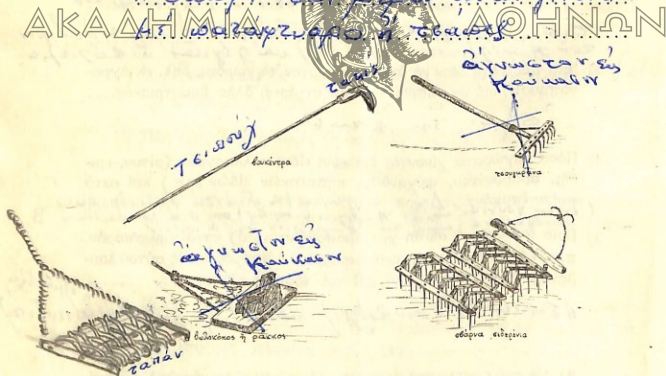 ΑΚΑΔΗΜΙΑ ΑΘΗΝΩΝ
ἤ τσάπες
τακίσ
ἄγνωστον εἰς
Καύκασον
Τσιπούχ
βουκέντρα
τσουγκράνα
ἄγνωστον εἰς
Καύκασον
βωλοκόπος ἤ ράκκος
σβάρνα σιδερένια
ταπάν